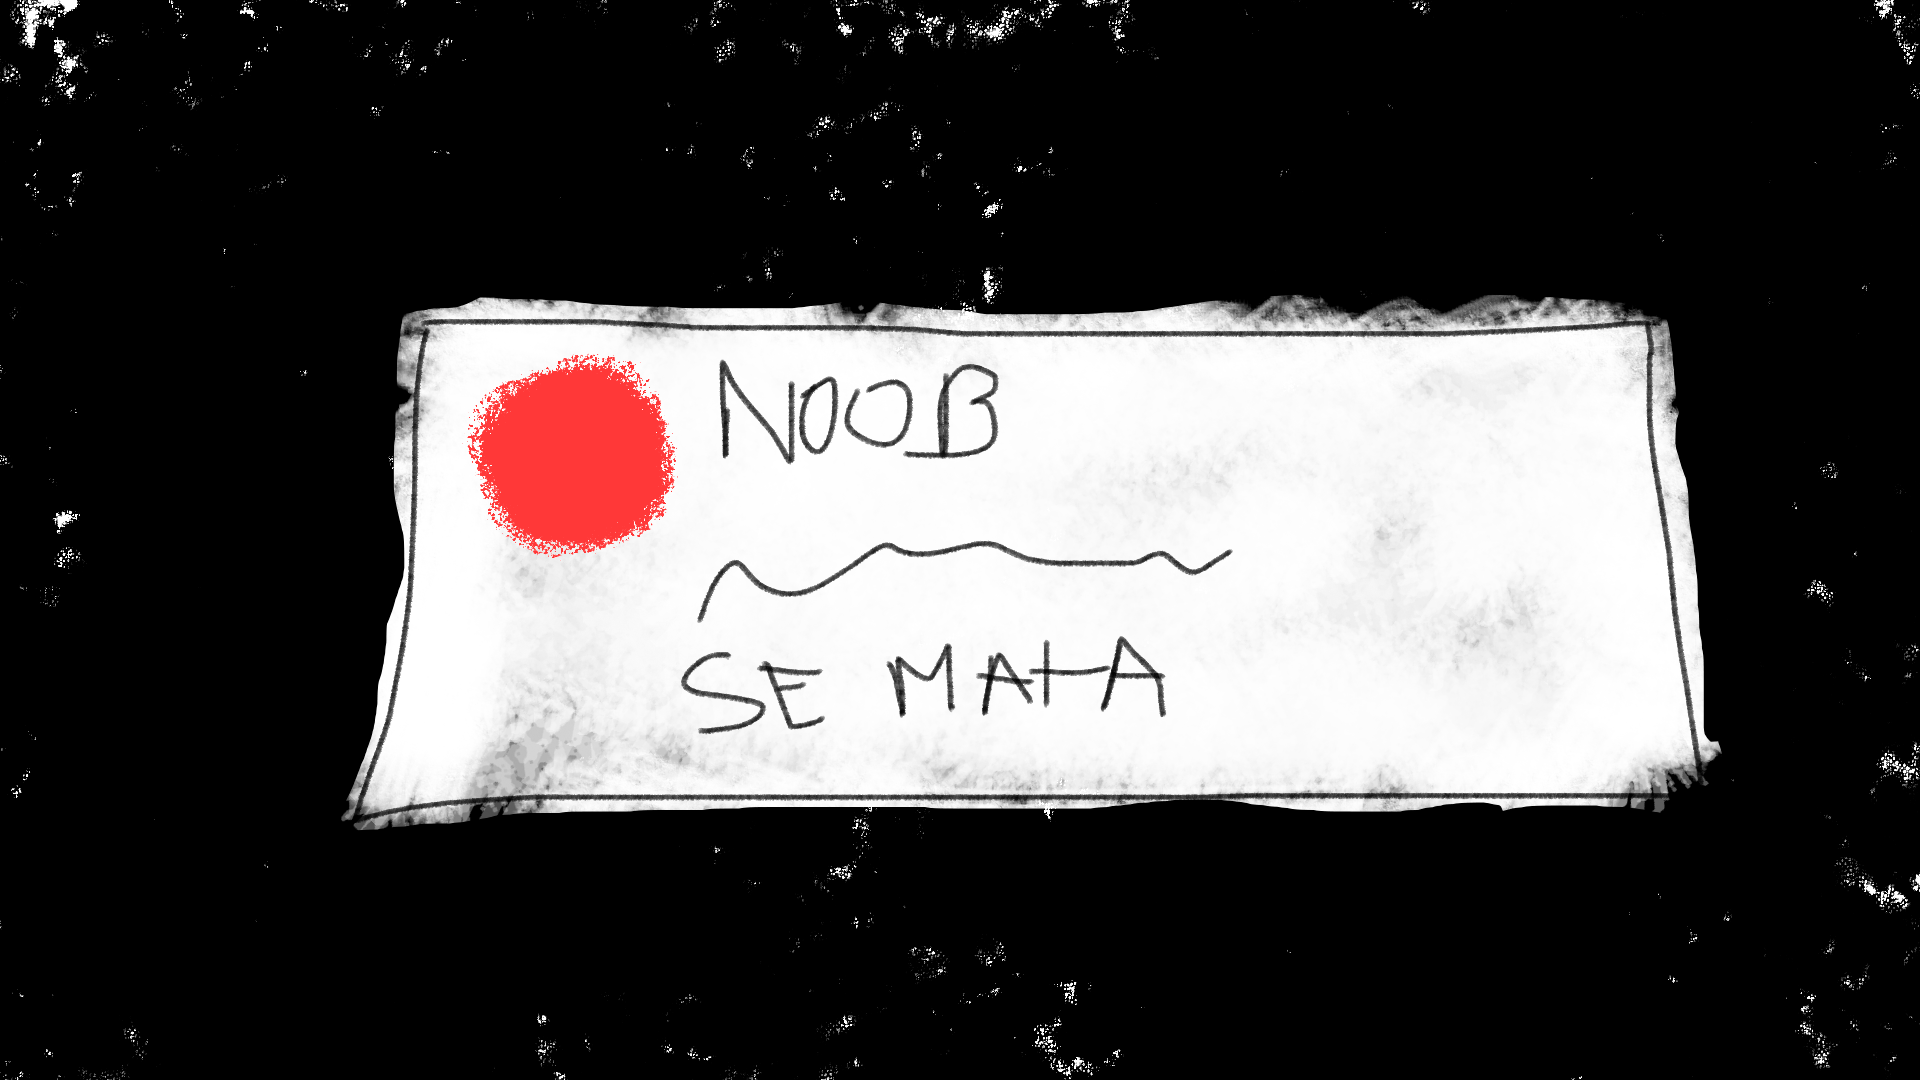 NOOB
SE MATA